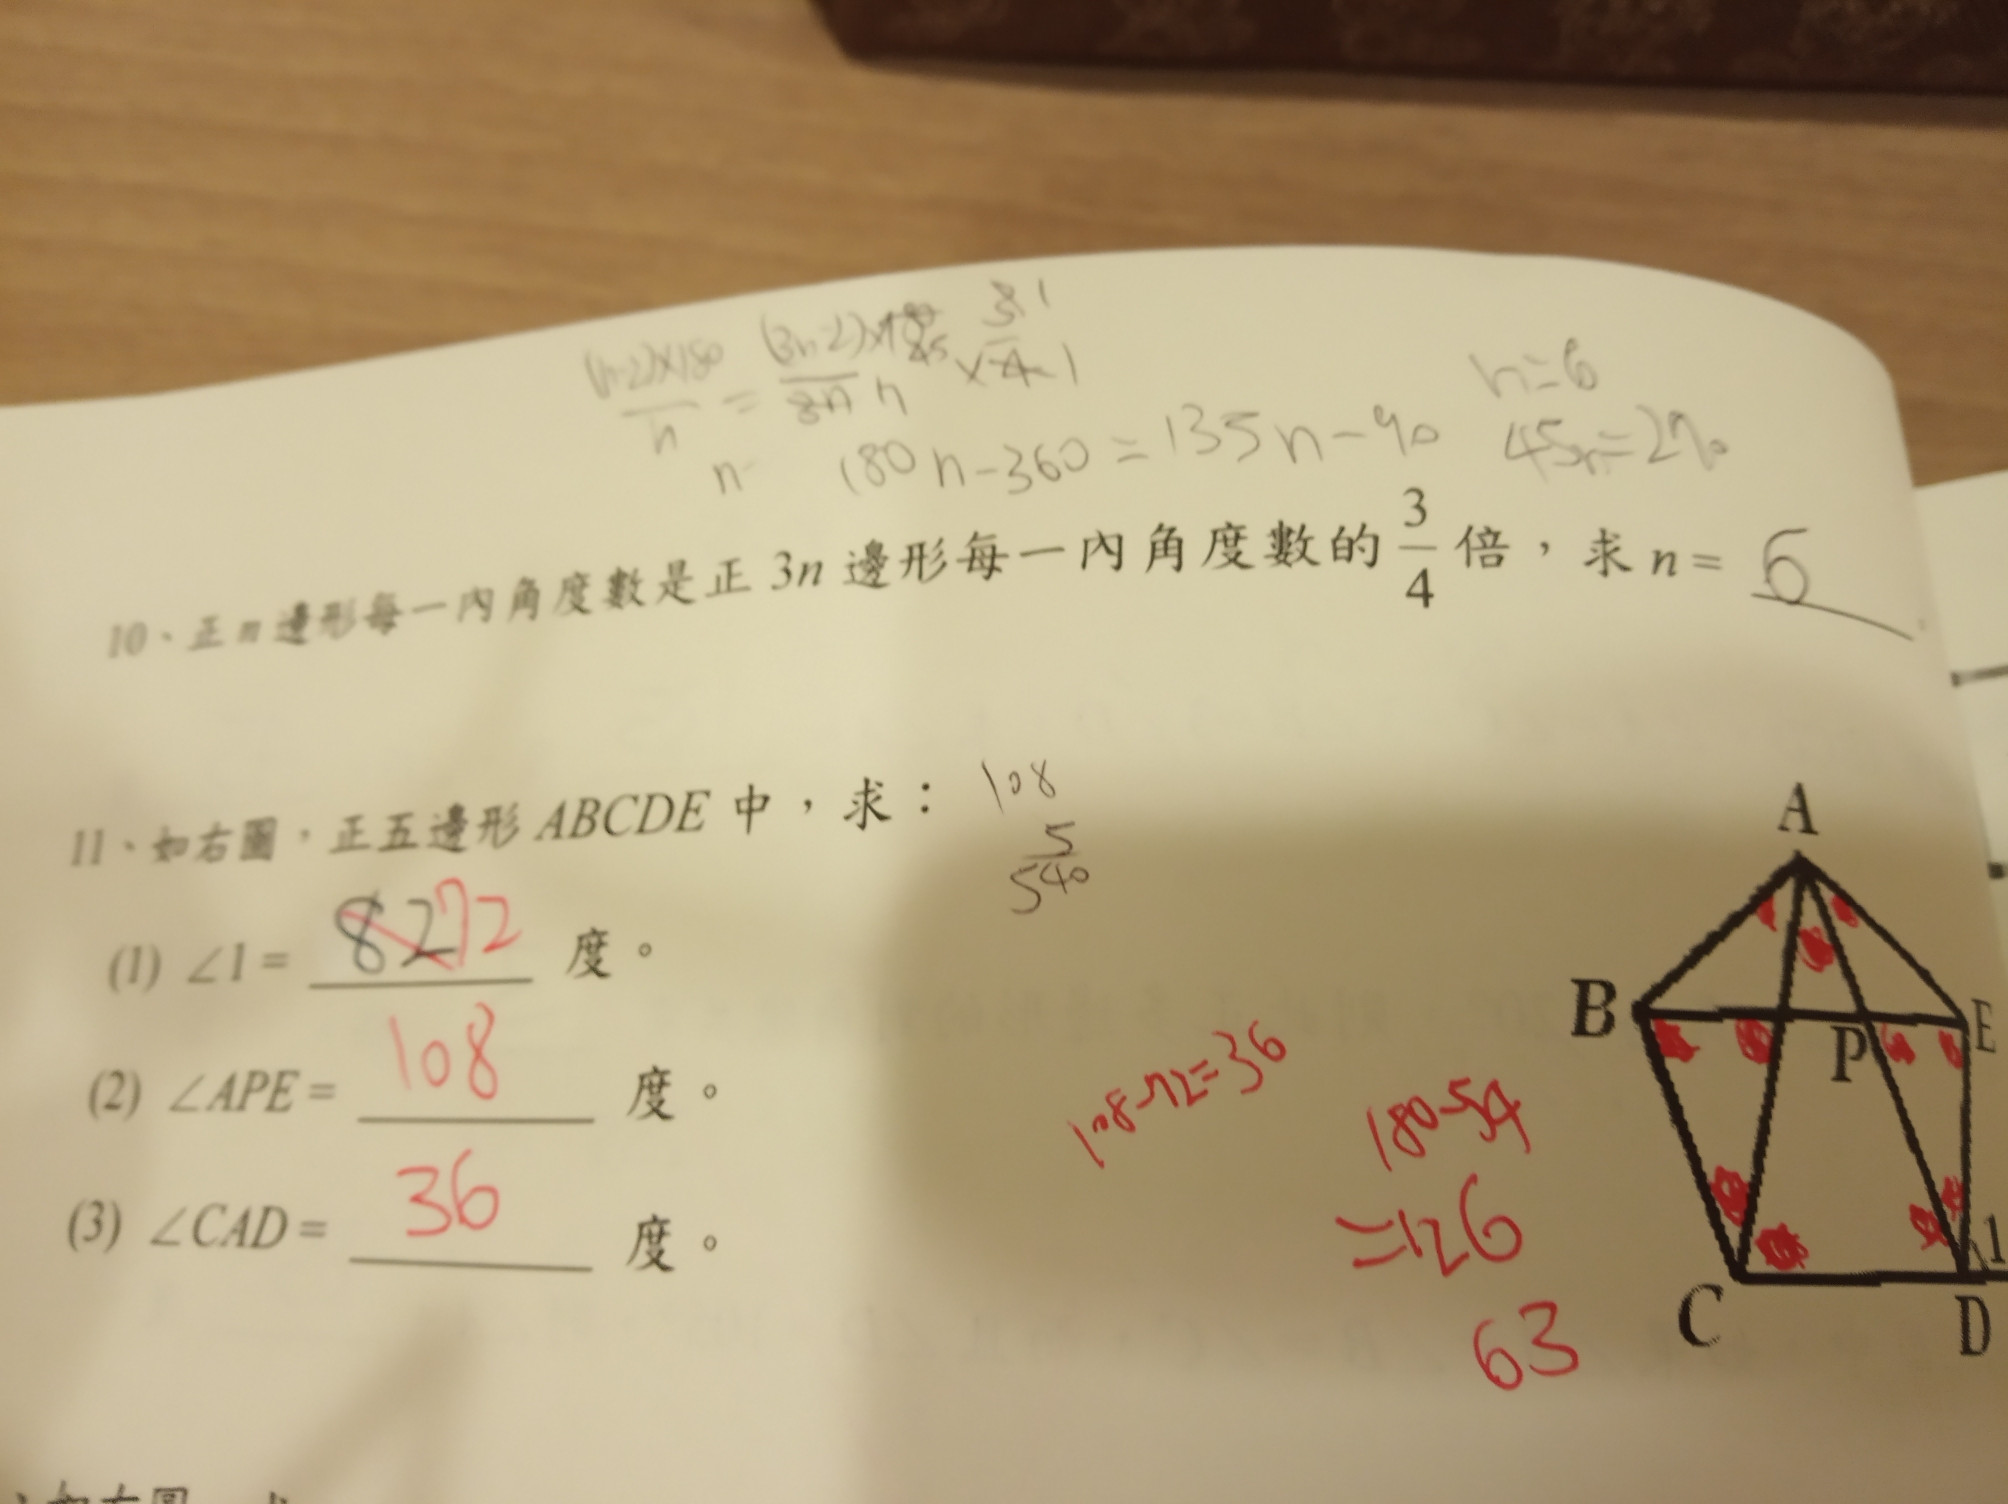 (n-2)×180
n
=
(3n-2)×180 45
3n n
×
3 1
4 1
n=6
n 180n-360=135n-90 45n=270
10、正 n 邊形每一內角度數是正 3n 邊形每一內角度數的 3/4 倍，求 n = 6
11、如右圖，正五邊形 ABCDE 中，求：
108
5
540
(1) ∠1 = 82 72 度。
(2) ∠APE = 108 度。
(3) ∠CAD = 36 度。
108-72=36
180-54
=126
63
A
B
P
E
C
D
1